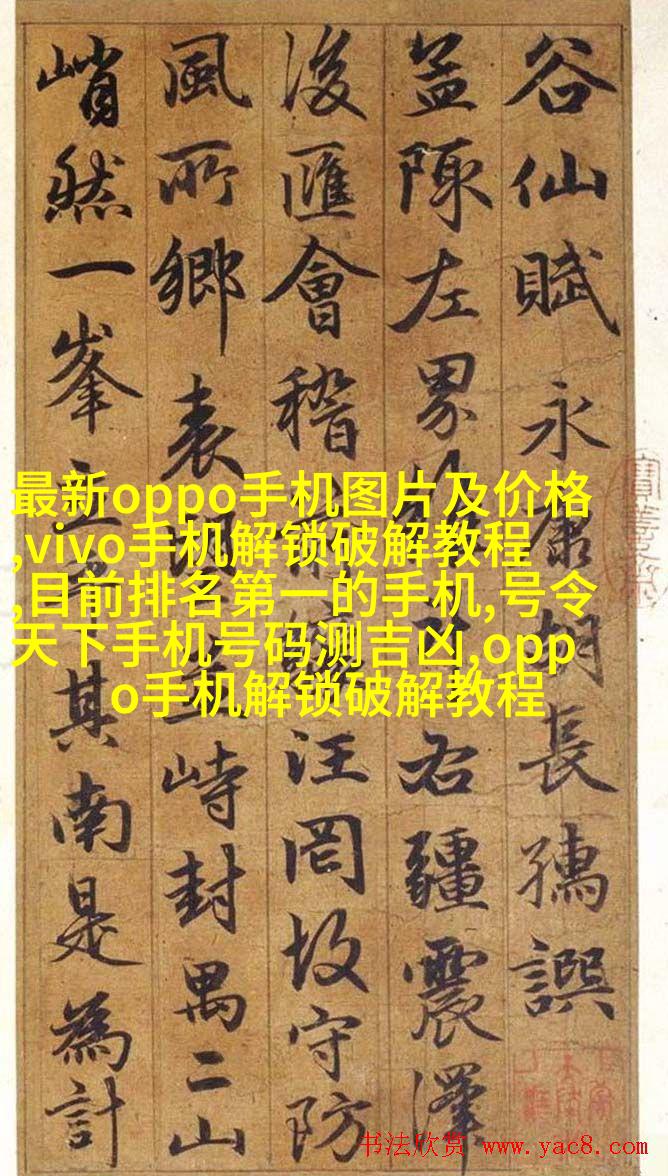 谷仙賦 永康胡長孺譔
盖陳左界 右疆震澤
浚匯會稽 汪罔故守防
風所鄉表 峙封禺二山
峭然一峯立乎其南是為計
最新oppo手机图片及价格
,vivo手机解锁破解教程
,目前排名第一的手机,号令
天下手机号码测吉凶,opp
o手机解锁破解教程
书法欣赏 www.yac8.com